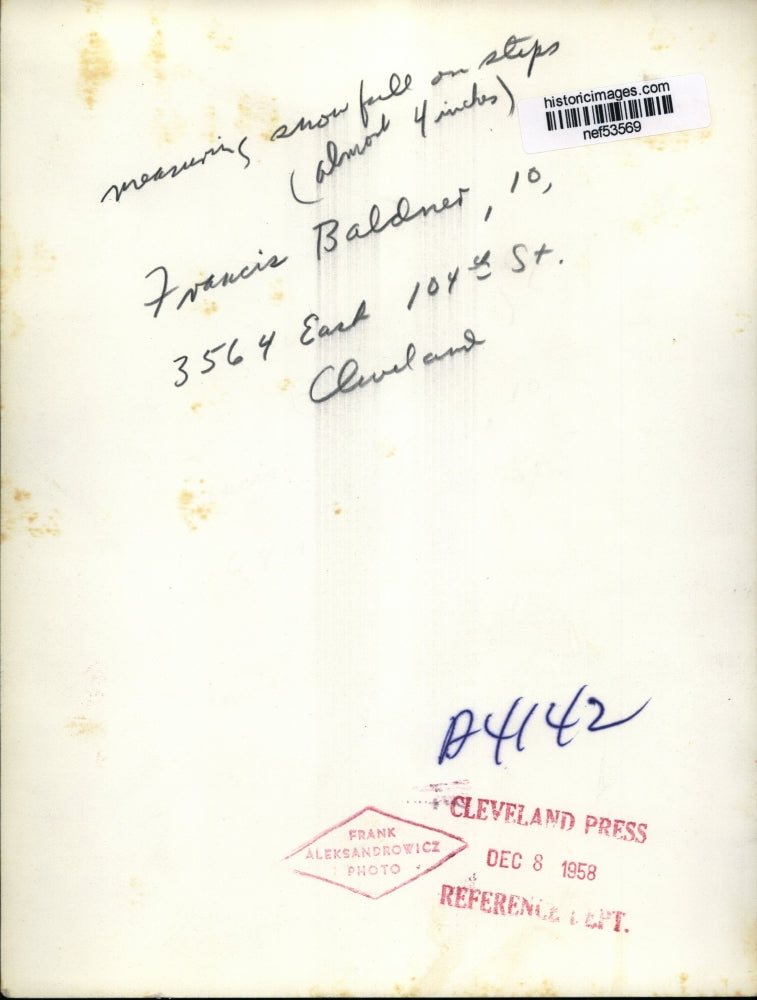 measuring snowfall on steps
(almost 4 inches)
historicimages.com
nef53569
Francis Baldner, 10,
3564 East 104th St.
Cleveland
A4142
CLEVELAND PRESS
DEC 8 1958
REFERENCE DEPT.
FRANK
ALEKSANDROWICZ
PHOTO